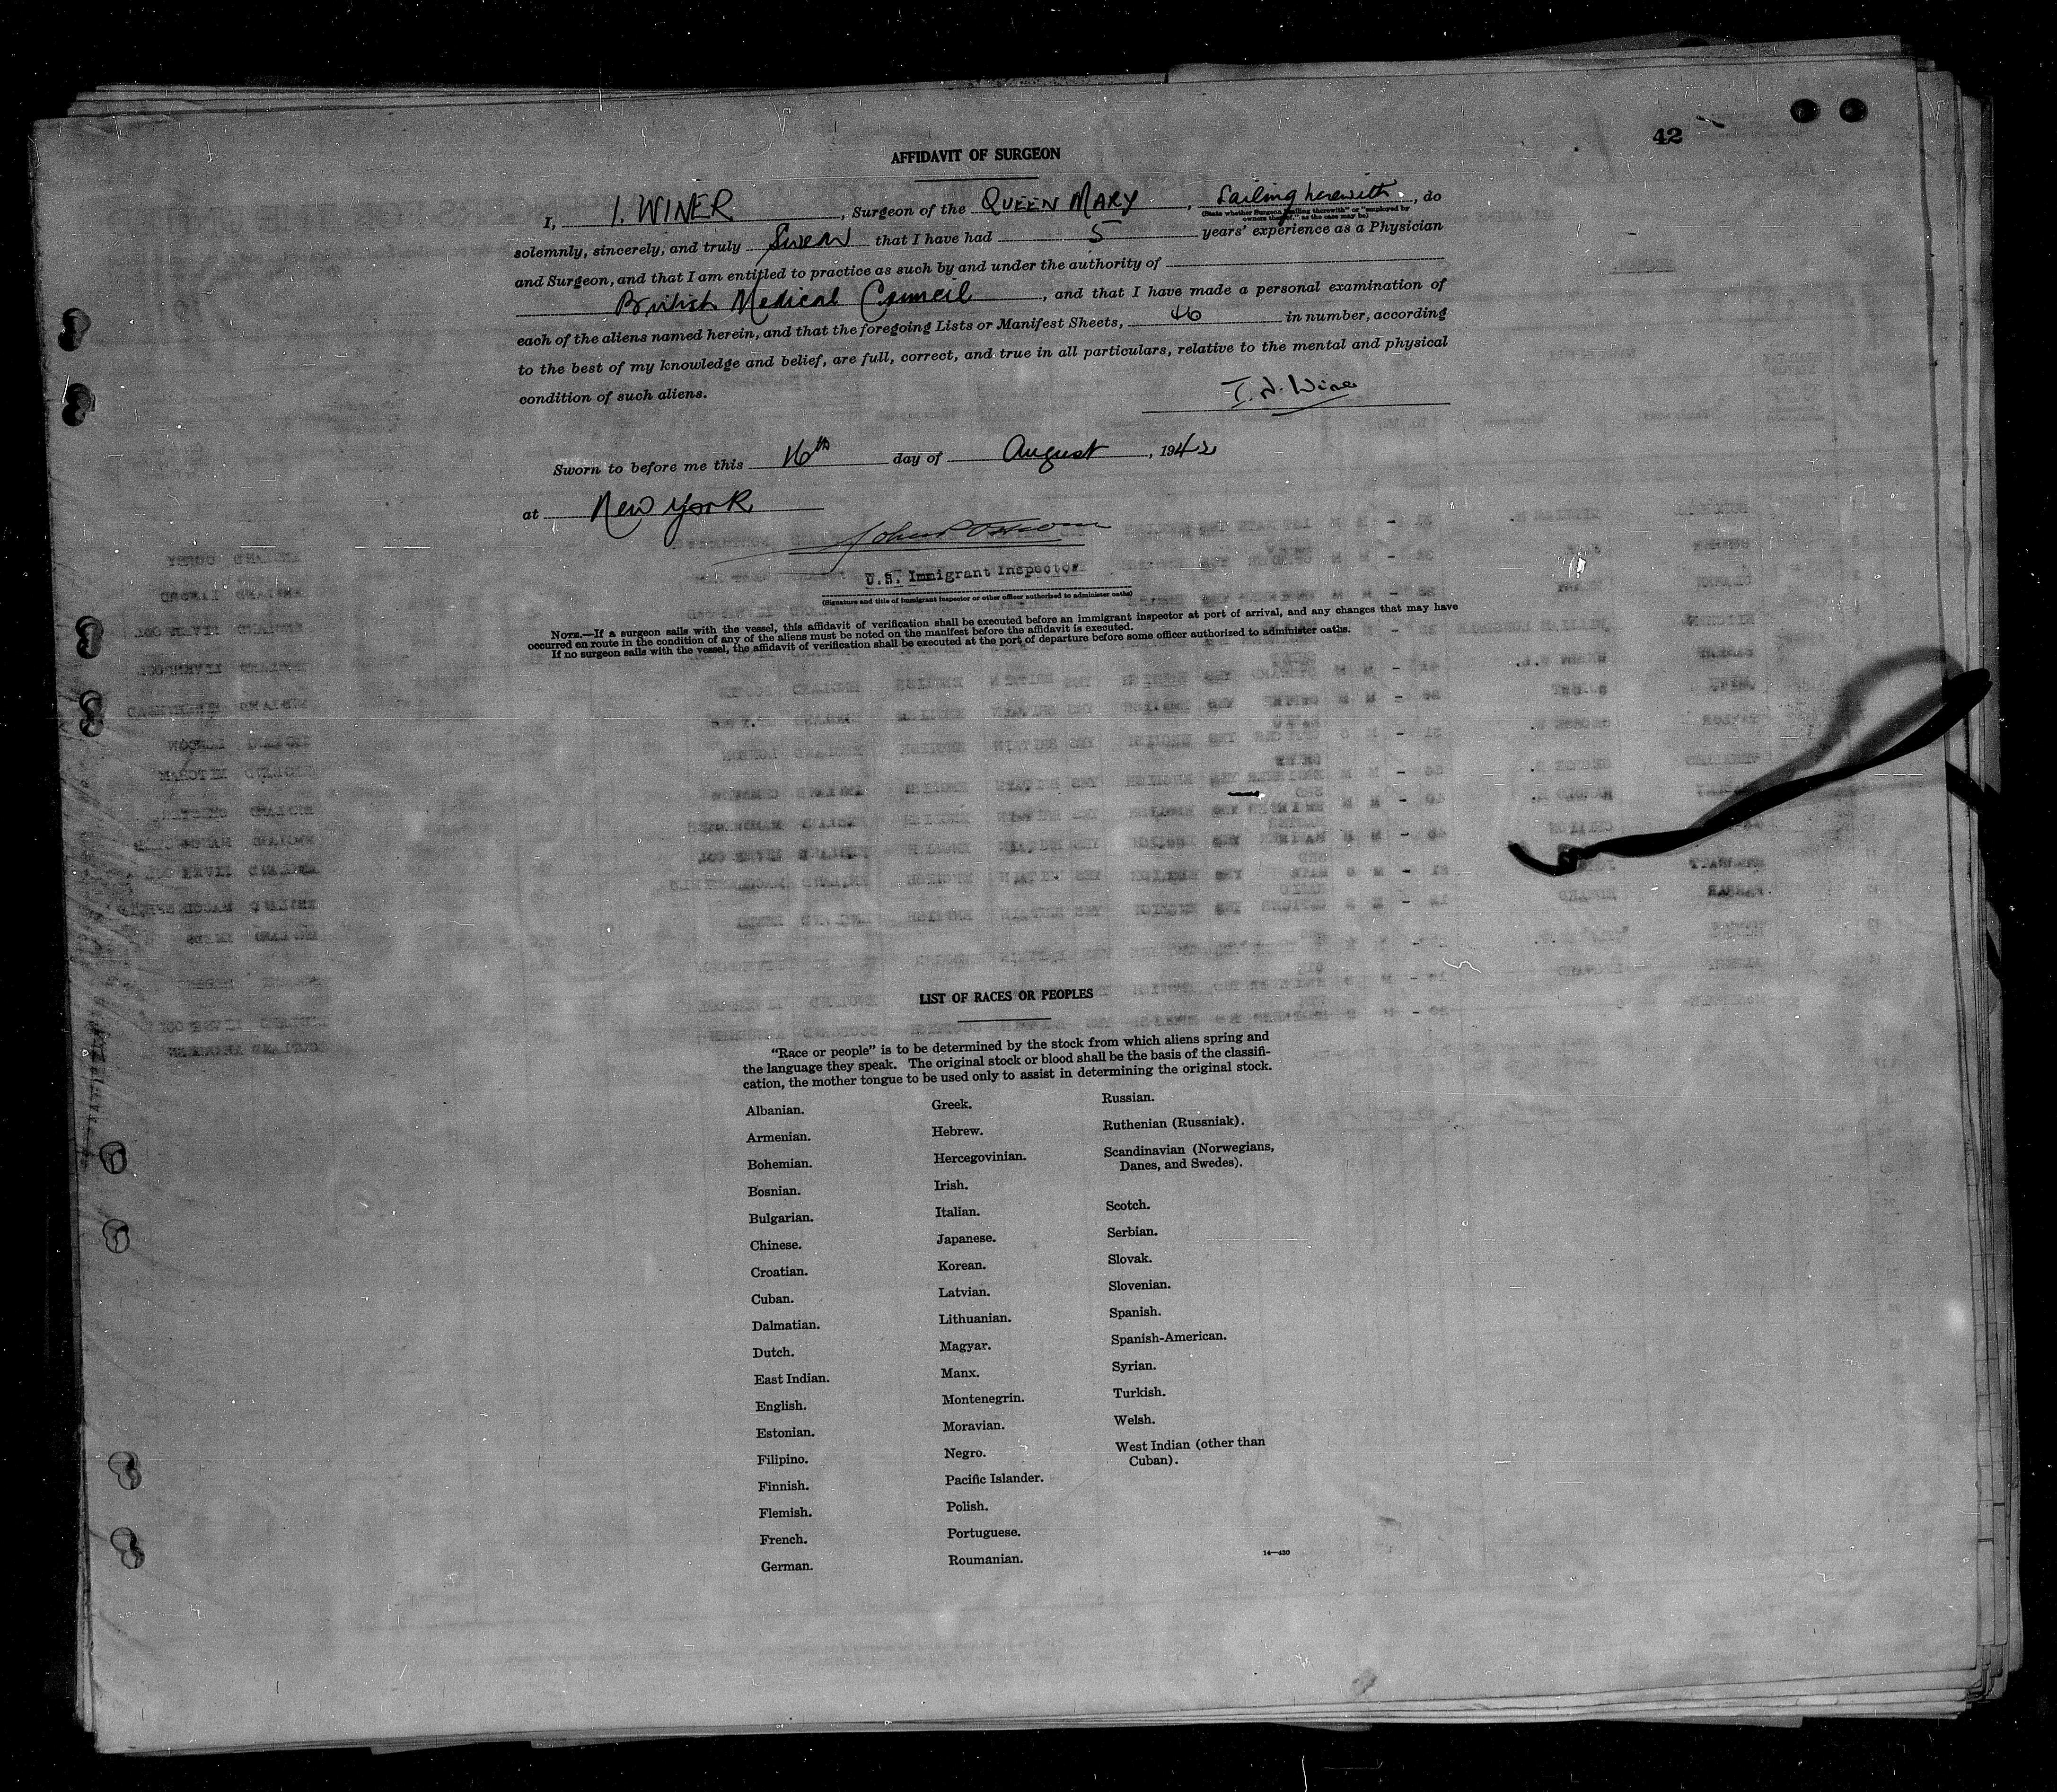 42
AFFIDAVIT OF SURGEON
I, I. WINER, Surgeon of the QUEEN MARY, Sailing herewith, do
(State whether Surgeon "sailing therewith" or "employed by
owners thereof," as the case may be)
solemnly, sincerely, and truly swear that I have had 5 years' experience as a Physician
and Surgeon, and that I am entitled to practice as such by and under the authority of
British Medical Council, and that I have made a personal examination of
each of the aliens named herein, and that the foregoing Lists or Manifest Sheets, 46 in number, according
to the best of my knowledge and belief, are full, correct, and true in all particulars, relative to the mental and physical
condition of such aliens.
Sworn to before me this 16th day of August, 1942
at New York
U.S. Immigrant Inspector
(Signature and title of immigrant inspector or other officer authorized to administer oaths)
NOTE.—If a surgeon sails with the vessel, this affidavit of verification shall be executed before an immigrant inspector at port of arrival, and any changes that may have
occurred en route in the condition of any of the aliens must be noted on the manifest before the affidavit is executed.
If no surgeon sails with the vessel, the affidavit of verification shall be executed at the port of departure before some officer authorized to administer oaths.
LIST OF RACES OR PEOPLES
"Race or people" is to be determined by the stock from which aliens spring and
the language they speak. The original stock or blood shall be the basis of the classifi-
cation, the mother tongue to be used only to assist in determining the original stock.
Albanian.
Armenian.
Bohemian.
Bosnian.
Bulgarian.
Chinese.
Croatian.
Cuban.
Dalmatian.
Dutch.
East Indian.
English.
Estonian.
Filipino.
Finnish.
Flemish.
French.
German.
Greek.
Hebrew.
Hercegovinian.
Irish.
Italian.
Japanese.
Korean.
Latvian.
Lithuanian.
Magyar.
Manx.
Montenegrin.
Moravian.
Negro.
Pacific Islander.
Polish.
Portuguese.
Roumanian.
Russian.
Ruthenian (Russniak).
Scandinavian (Norwegians,
Danes, and Swedes).
Scotch.
Serbian.
Slovak.
Slovenian.
Spanish.
Spanish-American.
Syrian.
Turkish.
Welsh.
West Indian (other than
Cuban).
14—430